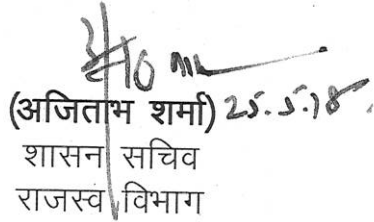 (अजिताभ शर्मा) 25.5.18
शासन सचिव
राजस्व विभाग